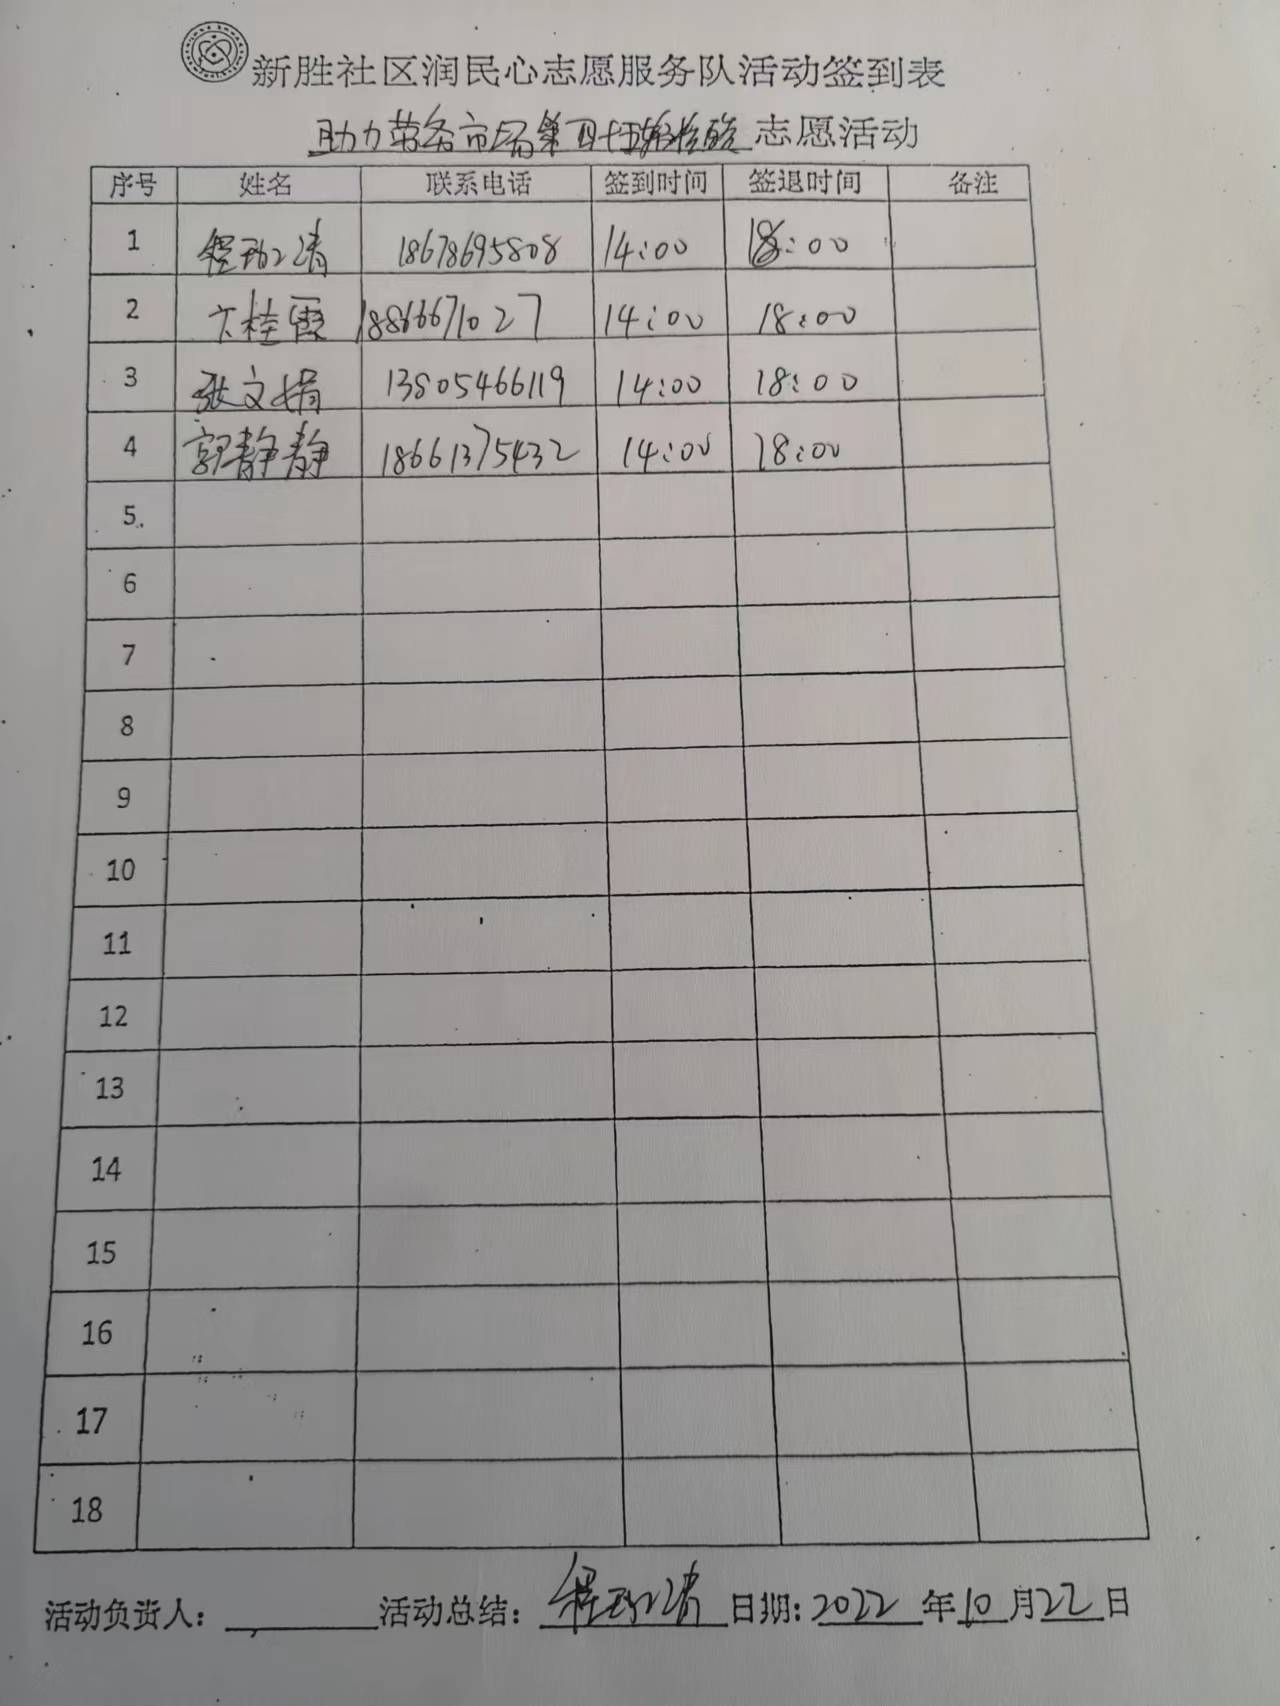 新胜社区润民心志愿服务队活动签到表
助力劳务市场第四十五轮核酸志愿活动
序号 姓名 联系电话 签到时间 签退时间 备注
1 程 清 18678695808 14:00 18:00
2 卞桂霞 18866671027 14:00 18:00
3 张文娟 13805466119 14:00 18:00
4 郭静静 18661375432 14:00 18:00
5
6
7
8
9
10
11
12
13
14
15
16
17
18
活动负责人: 活动总结: 程 清 日期: 2022 年 10 月 22 日